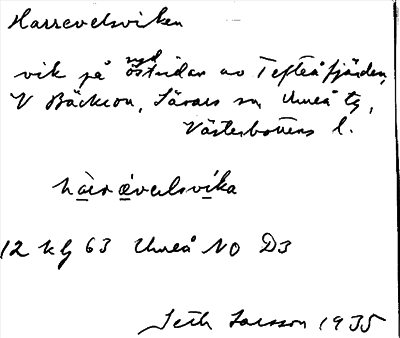 Harrevelsviken
syd
vik på östsidan av Tefteåfjärden,
V Bäckron, Sävars sn, Umeå tg,
Västerbottens l.
hàrrǽvelsvíka
12 kg 63 Umeå NO D3
Seth Larsson 1935